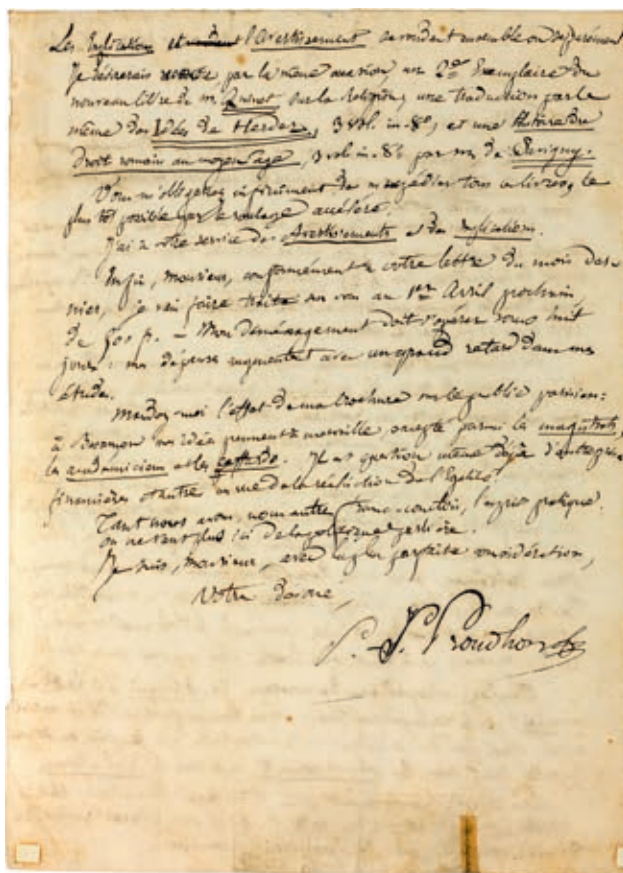 Les Explications et l'Avertissement se vendent ensemble ou séparément
Je désirerais par la même occasion un 2d Exemplaire du
nouveau livre de M. Quinet sur la Religion, une traduction par le
même des Idées de Herder, 3 vol. in-8°, et une Histoire du
droit romain au moyen âge, 3 vol. in-8° par M. de Savigny.
Vous m'obligerez infiniment de m'expédier tous ces livres, le
plus tôt possible par le roulage accéléré.
J'ai à votre service des Avertissements et des Explications.
Enfin, Monsieur, conformément à votre lettre du mois der-
nier, je vais faire traite sur vous au 1er Avril prochain,
de 500 f. – Mon déménagement doit s'opérer sous huit
jours : mes dépenses augmentent avec un grand retard dans mes
études.
Mandez-moi l'effet de ma brochure sur le public parisien :
à Besançon mes idées prennent à merveille, excepté parmi les magistrats,
les académiciens et les caffards. Il est question même déjà d'entreprises
financières et autres en vue de la réalisation de l'Egalité.
Tant nous avons, nous autres francs-comtois, l'esprit pratique.
on ne veut plus ici de la
Je suis, Monsieur, avec la plus parfaite considération,
Votre
P. J. Proudhon